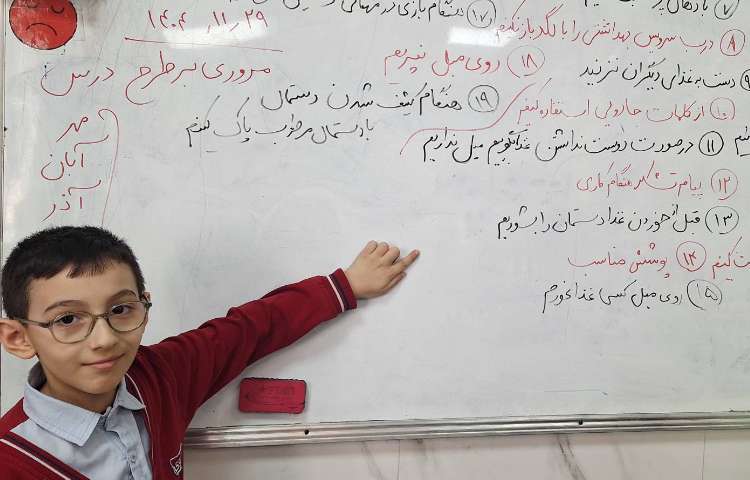 ۱۴۰۴/۱۱/۲۹
مروری بر طرح درس
مهر
آبان
آذر
۱۷ هنگام بازی در مهمانی
۱۸ روی مبل نپریم
۱۹ هنگام کثیف شدن دستمال
با دستمال مرطوب پاک کنیم
۷ با دهان پر
۸ درب سرویس بهداشتی را با لگد باز نکنیم
۹ دست به غذای دیگران نزنید
۱۰ از کلمات جادویی استفاده کنیم
۱۱ در صورت دوست نداشتن غذا بگوییم میل نداریم
۱۲ پیام تشکر هنگام کاری
۱۳ قبل از خوردن غذا دستمان را بشوریم
۱۴ پوشش مناسب
۱۵ روی مبل کسی غذا نخوریم